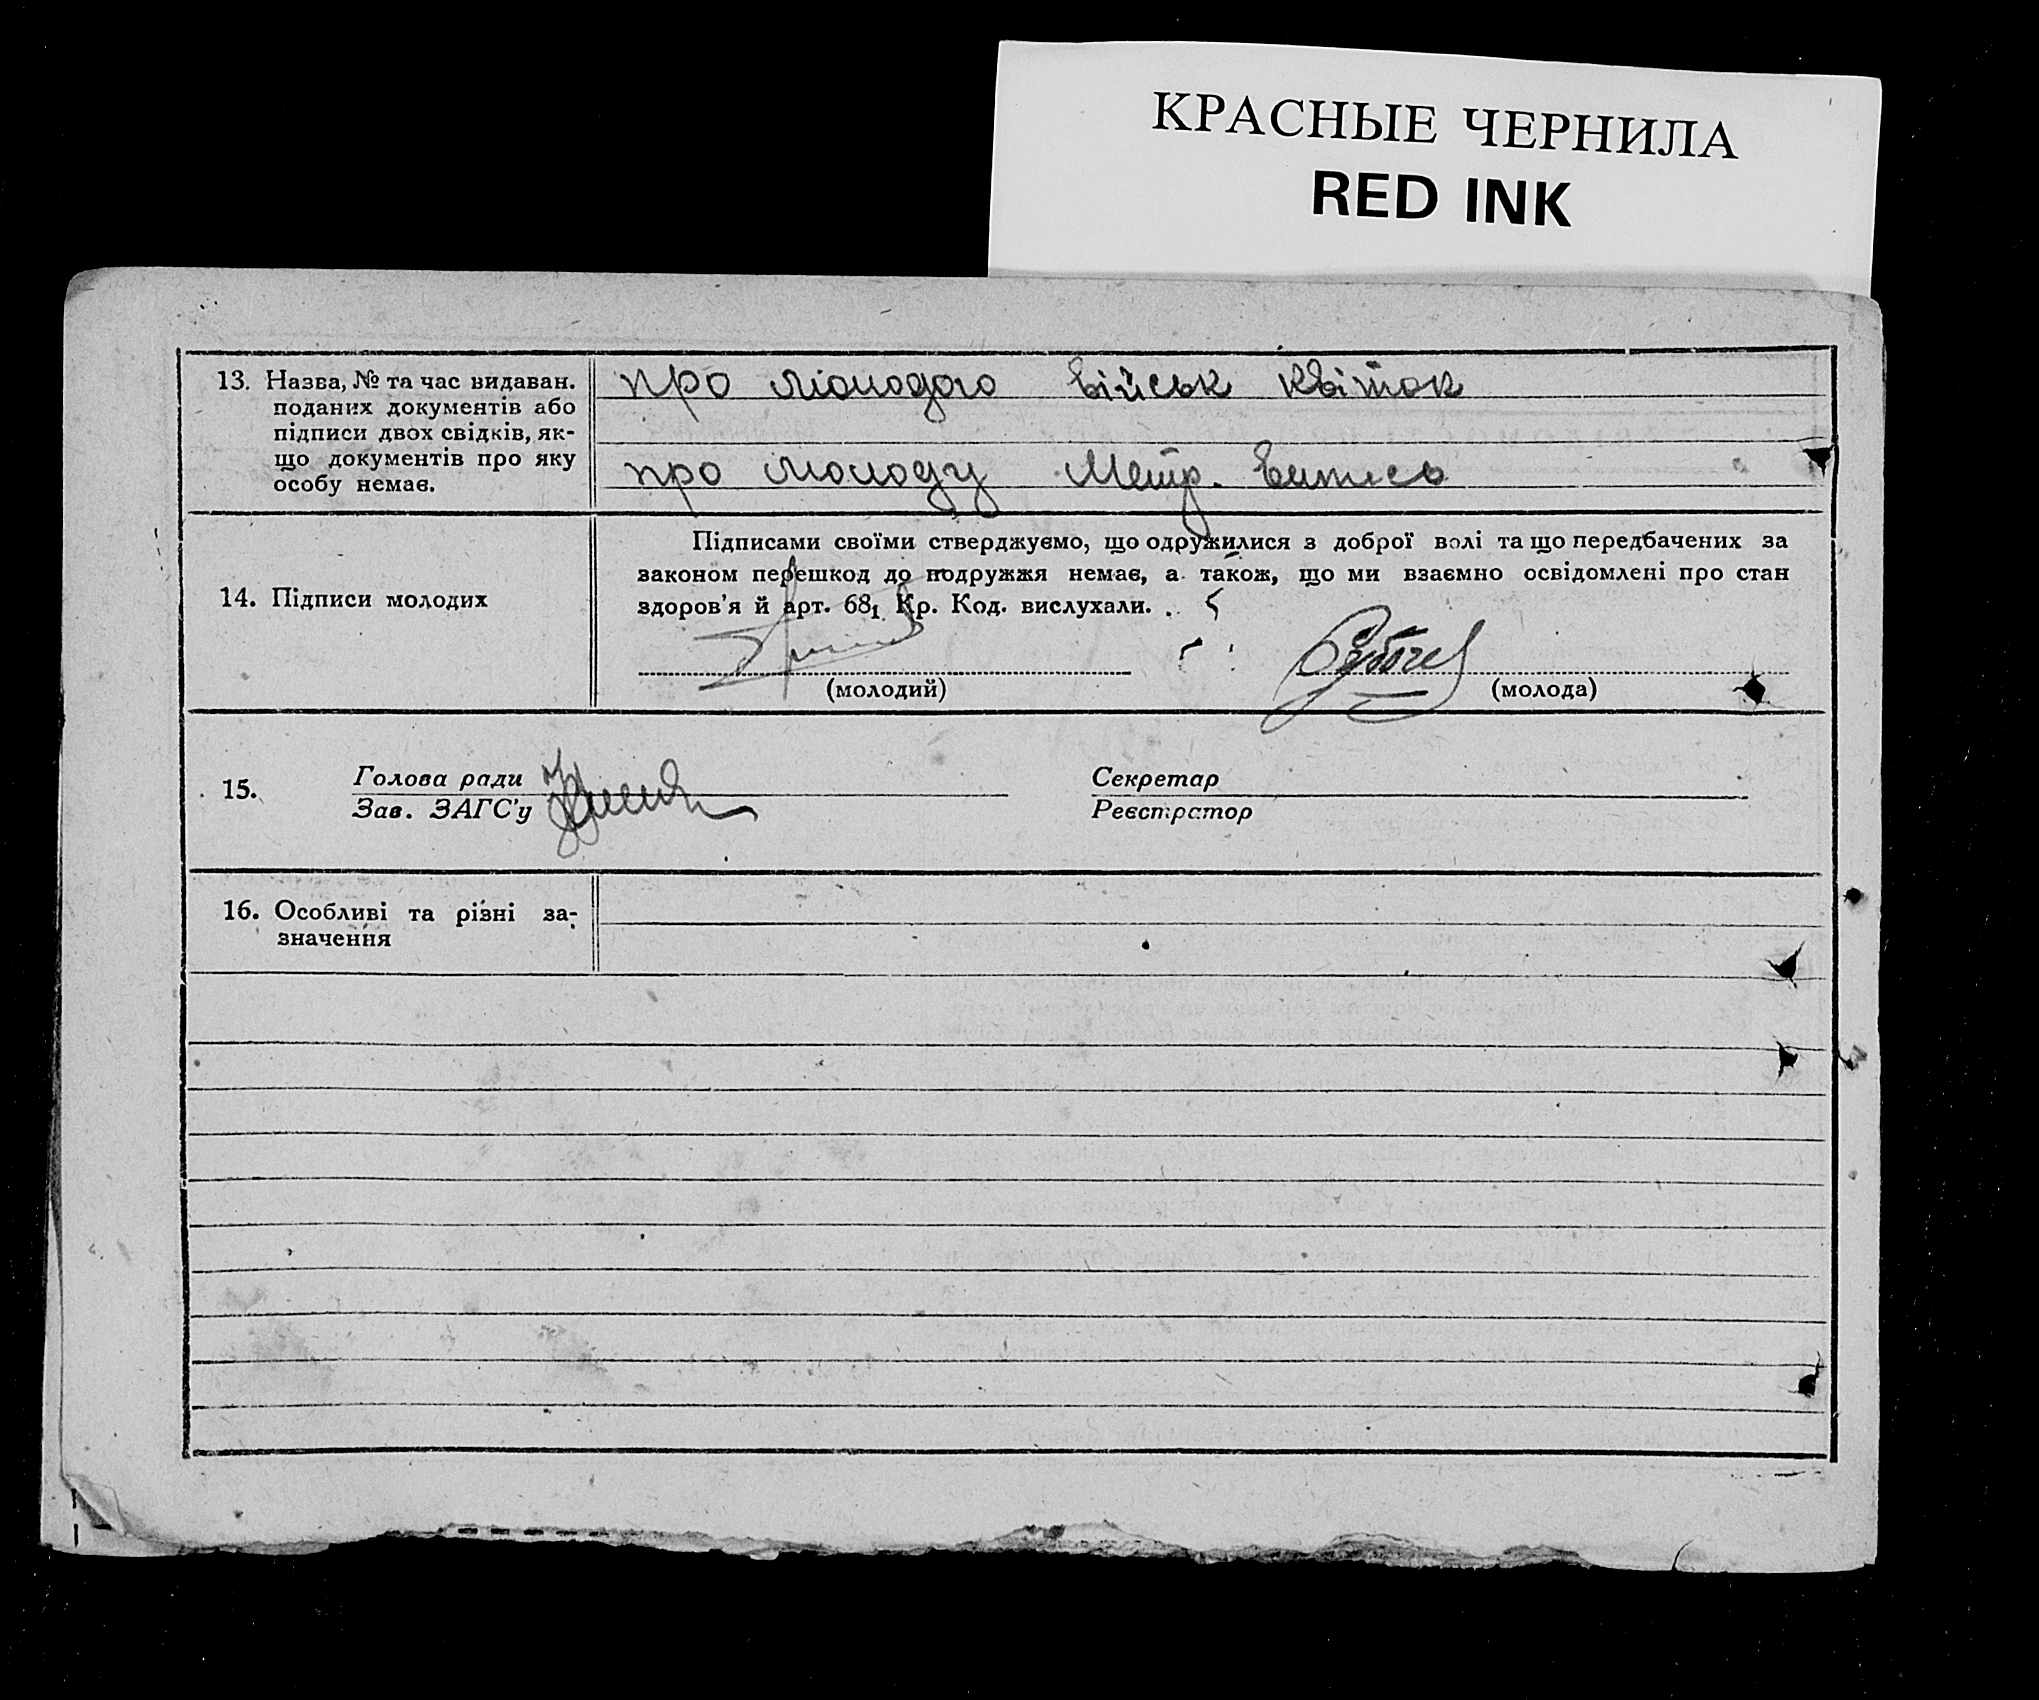 КРАСНЫЕ ЧЕРНИЛА
RED INK
13. Назва, № та час видаван.
поданих документів або
підписи двох свідків, як-
що документів про яку
особу немає.
про молодого військ квіток
про молоду Метр. витись
14. Підписи молодих
Підписами своїми стверджуємо, що одружилися з доброї волі та що передбачених за
законом перешкод до подружжя немає, а також, що ми взаємно освідомлені про стан
здоров'я й арт. 68₁ Кр. Код. вислухали.
(молодий)
(молода)
15.
Голова ради
Зав. ЗАГС'у
Секретар
Реєстратор
16. Особливі та різні за-
значення